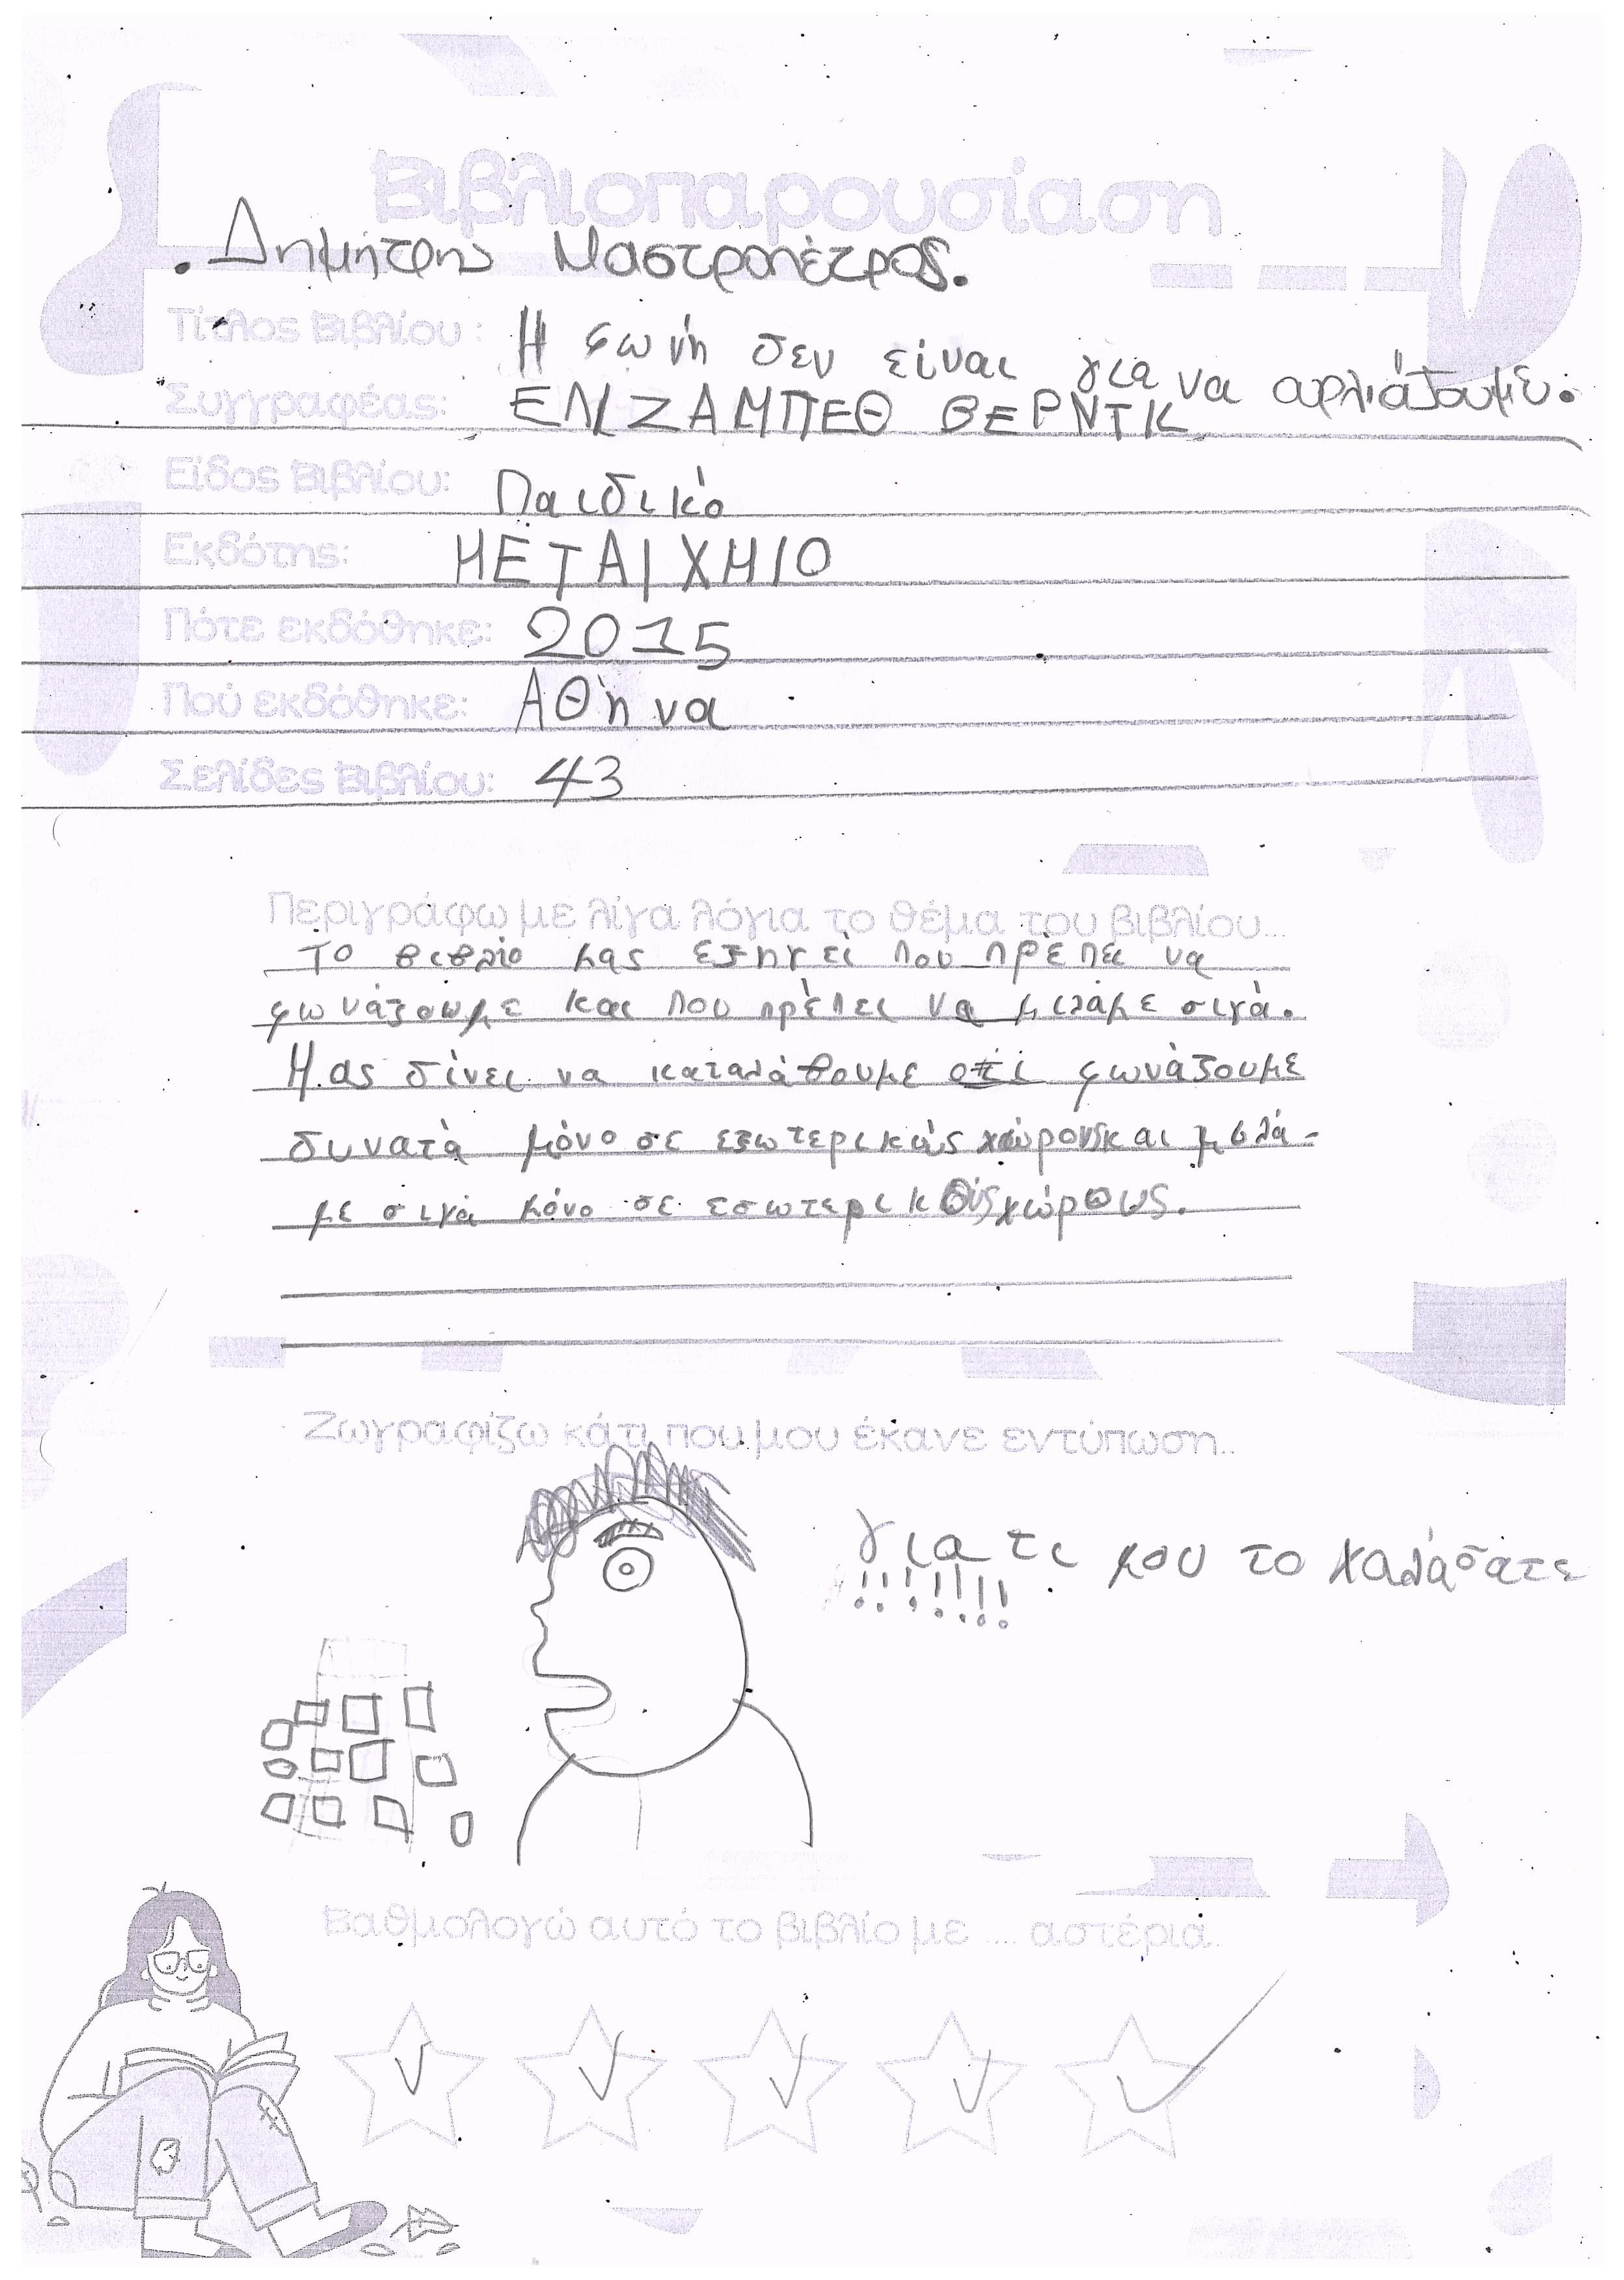 Βιβλιοπαρουσίαση
. Δημήτρης Μαστροπέτρος.
Τίτλος Βιβλίου : Η φωνή δεν είναι για να ουρλιάζουμε.
Συγγραφέας: ΕΛΙΖΑΜΠΕΘ ΒΕΡΝΤΙΚ
Είδος Βιβλίου: Παιδικό
Εκδότης: ΜΕΤΑΙΧΜΙΟ
Πότε εκδόθηκε: 2015
Πού εκδόθηκε: Αθήνα
Σελίδες Βιβλίου: 43
Περιγράφω με λίγα λόγια το θέμα του βιβλίου...
Το βιβλίο μας εξηγεί που πρέπει να
φωνάζουμε και που πρέπει να μιλάμε σιγά.
Μας δίνει να καταλάβουμε ότι φωνάζουμε
δυνατά μόνο σε εξωτερικούς χώρους και μιλά-
με σιγά μόνο σε εσωτερικούς χώρους.
Ζωγραφίζω κάτι που μου έκανε εντύπωση..
για τι μου το χαλάσατε
!!!!!!!!
Βαθμολογώ αυτό το βιβλίο με ... αστέρια.